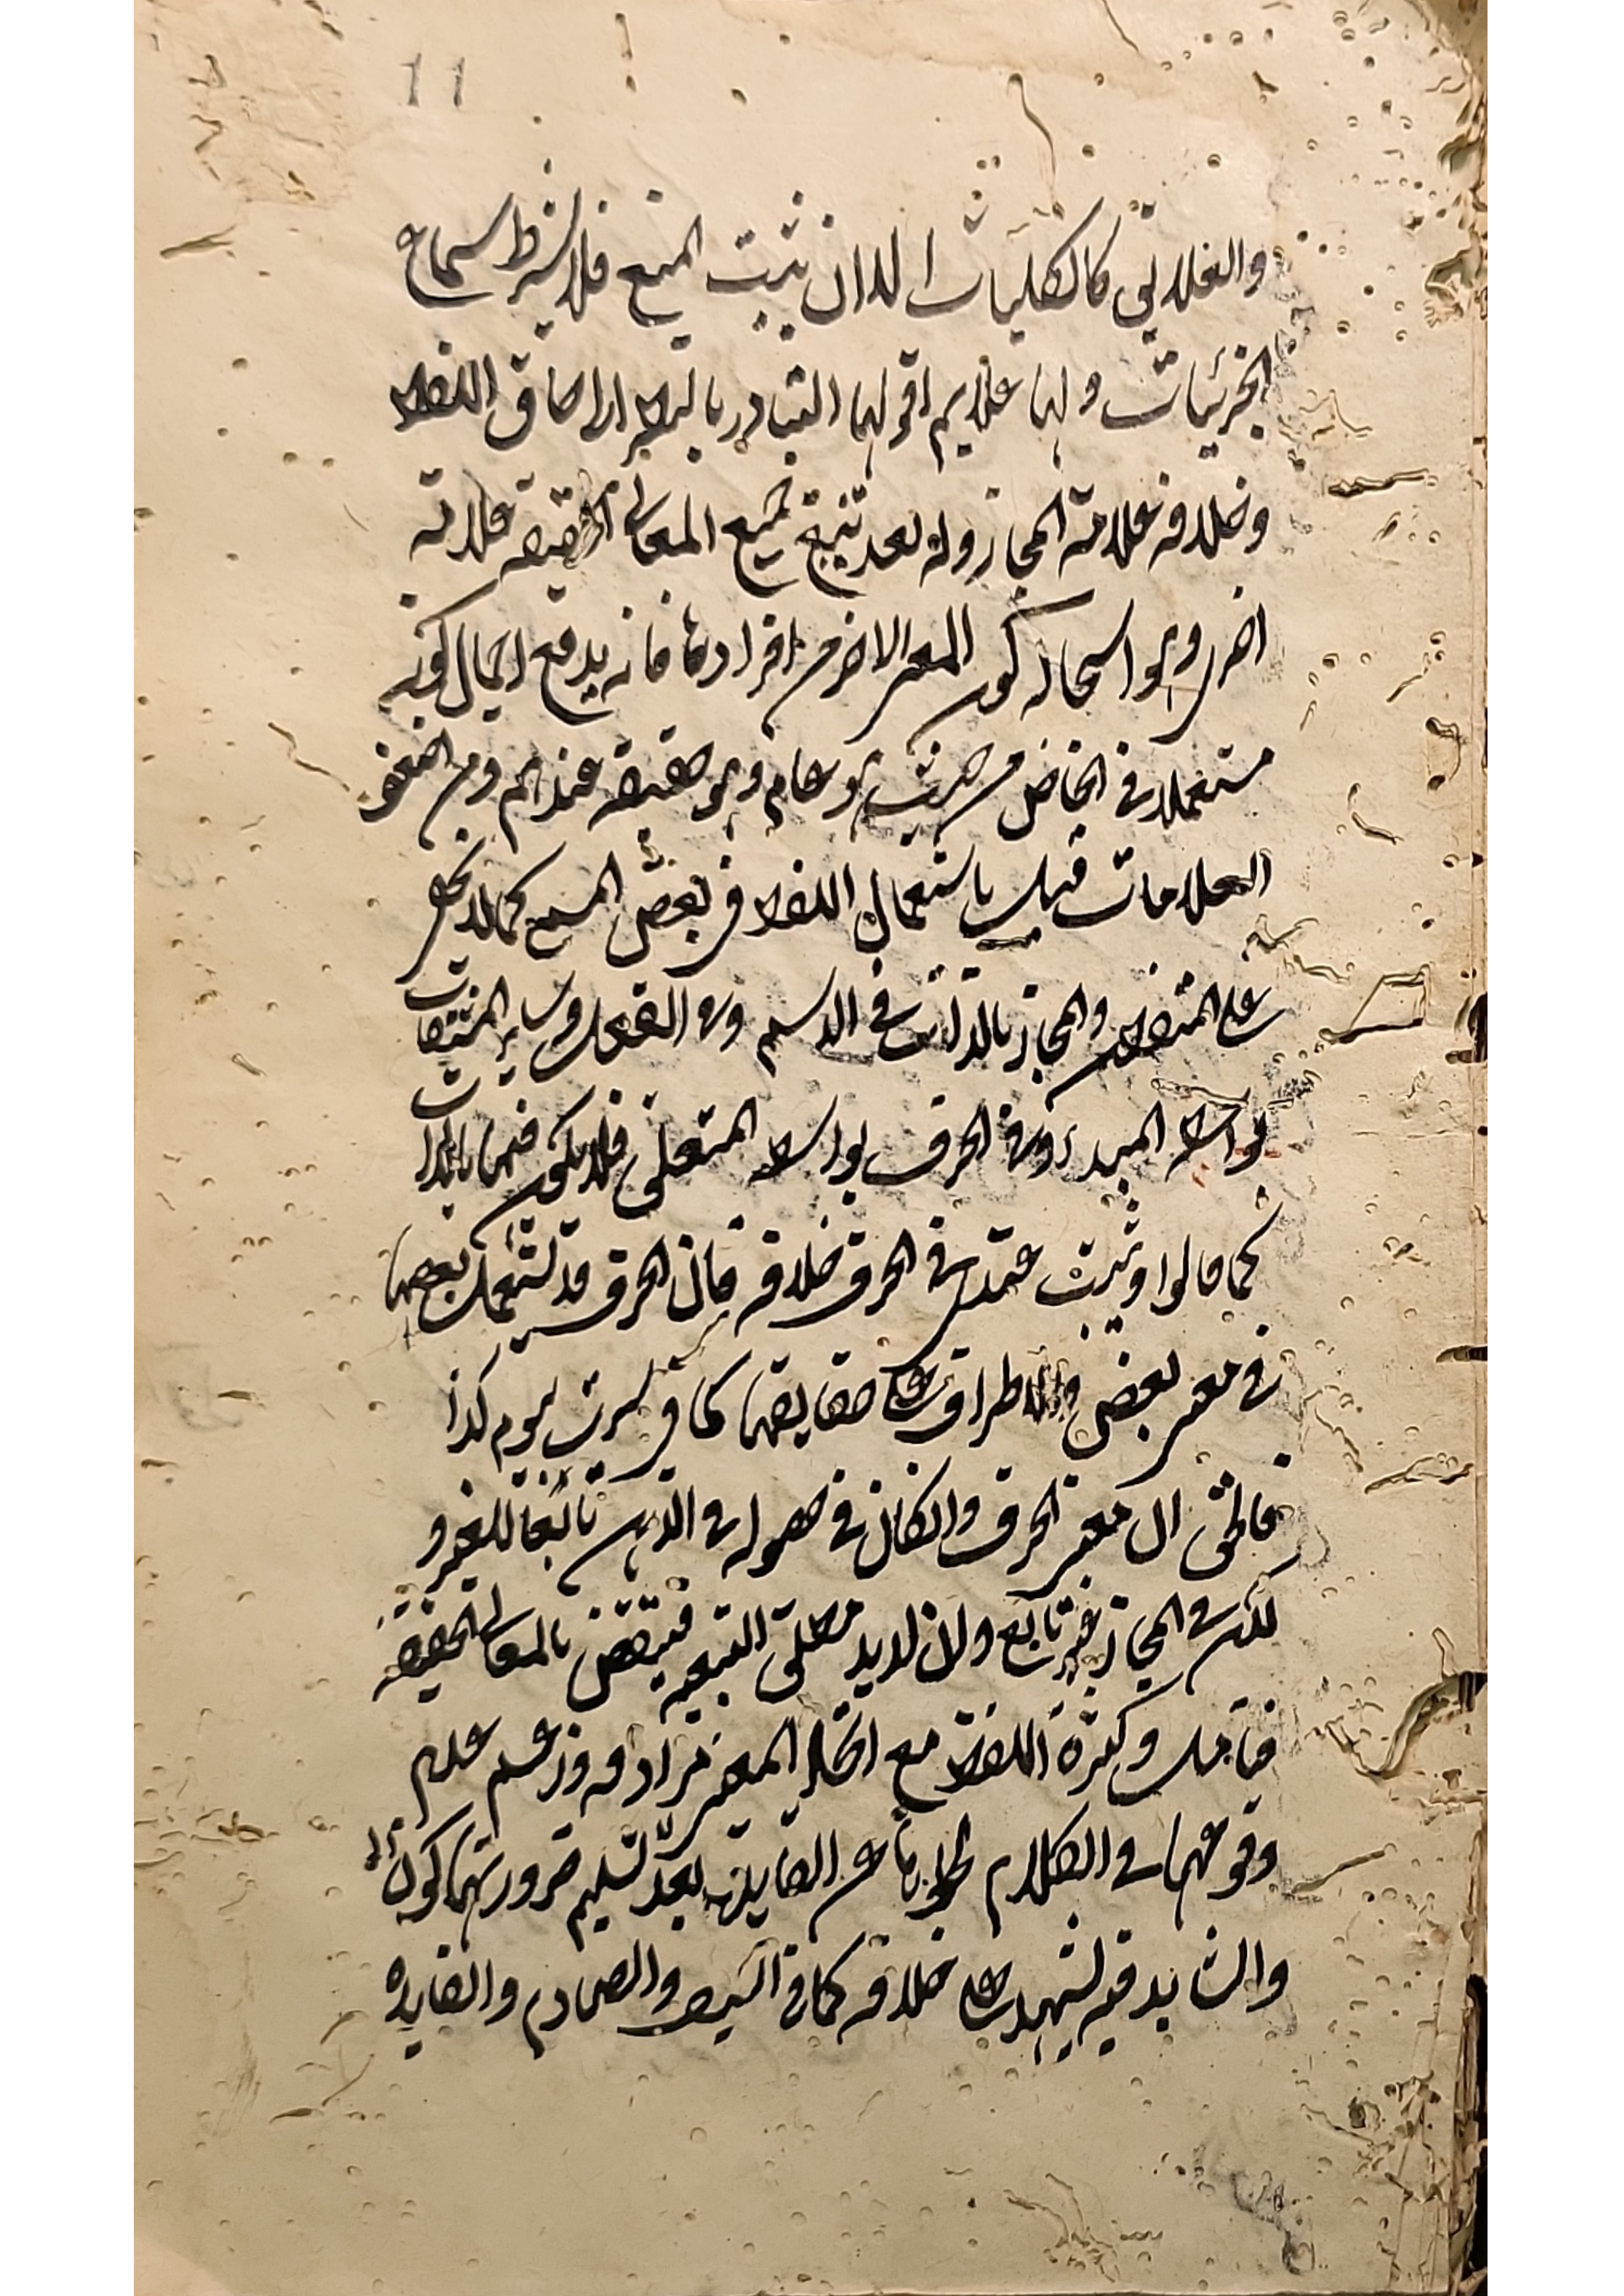 ١١
والعلائق كالكليات الا ان يثبت المنع فلا يشترط سماع
الجزئيات ولها علائم اقولها التبادر بالنظر الى اللفظ
وخلافه علامة المجاز وله بعد تتبع جميع المعاني الحقيقية علامة
اخرى وهو استحالة كون المعنى الاخر من افرادها فانه يدفع احتمال كونه
مستعملا في الخاص من حيث هو عام وهو حقيقة عندهم ومن اضعف
العلامات قيل باستعمال اللفظ في بعض المسمى كما لا يخفى
على المتفطن والمجاز بالذات في الاسم وفي الفعل وساير المشتقات
بواسطة المبدء وفي الحرف بواسطة المتعلق فلا يكون فيها بالذات
كما قالوا وثبت عندي في الحرف خلافه فان الحرف قد تستعمل بعضها
في معنى بعض والاطراف على حقايقها كما في سرت ليوم كذا
فالحق ان معنى الحرف وان كان في حصوله في الذهن تابعا للغير و
لكن في المجاز غير تابع ولا نريد مطلق التبعية فينتقض بالمعاني الحقيقية
فتأمل وكثرة اللفظ مع اتحاد المعنى ترادف وزعم عدم
وقوعهما في الكلام لخلوها عن الفايدة بعد تسليم ضرورتها كون
والشاهد فيه يشهد على خلافه كما في السيف والصارم والفايدة